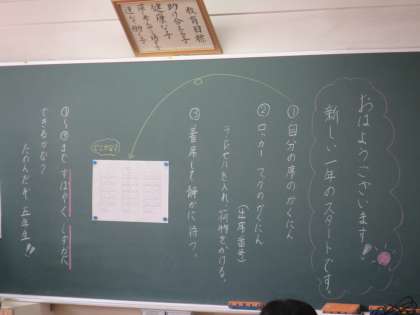 教育目標
助け合える子
健康な子
おはようございます!!
新しい一年のスタートです。
①自分の席のかくにん
②ロッカー、フックのかくにん
(出席番号)
ランドセルを入れ、荷物をかける。
③着席して静かに待つ。
①〜③まで すばやく しずかに
できるかな?
たのんだぞ 五年生!!